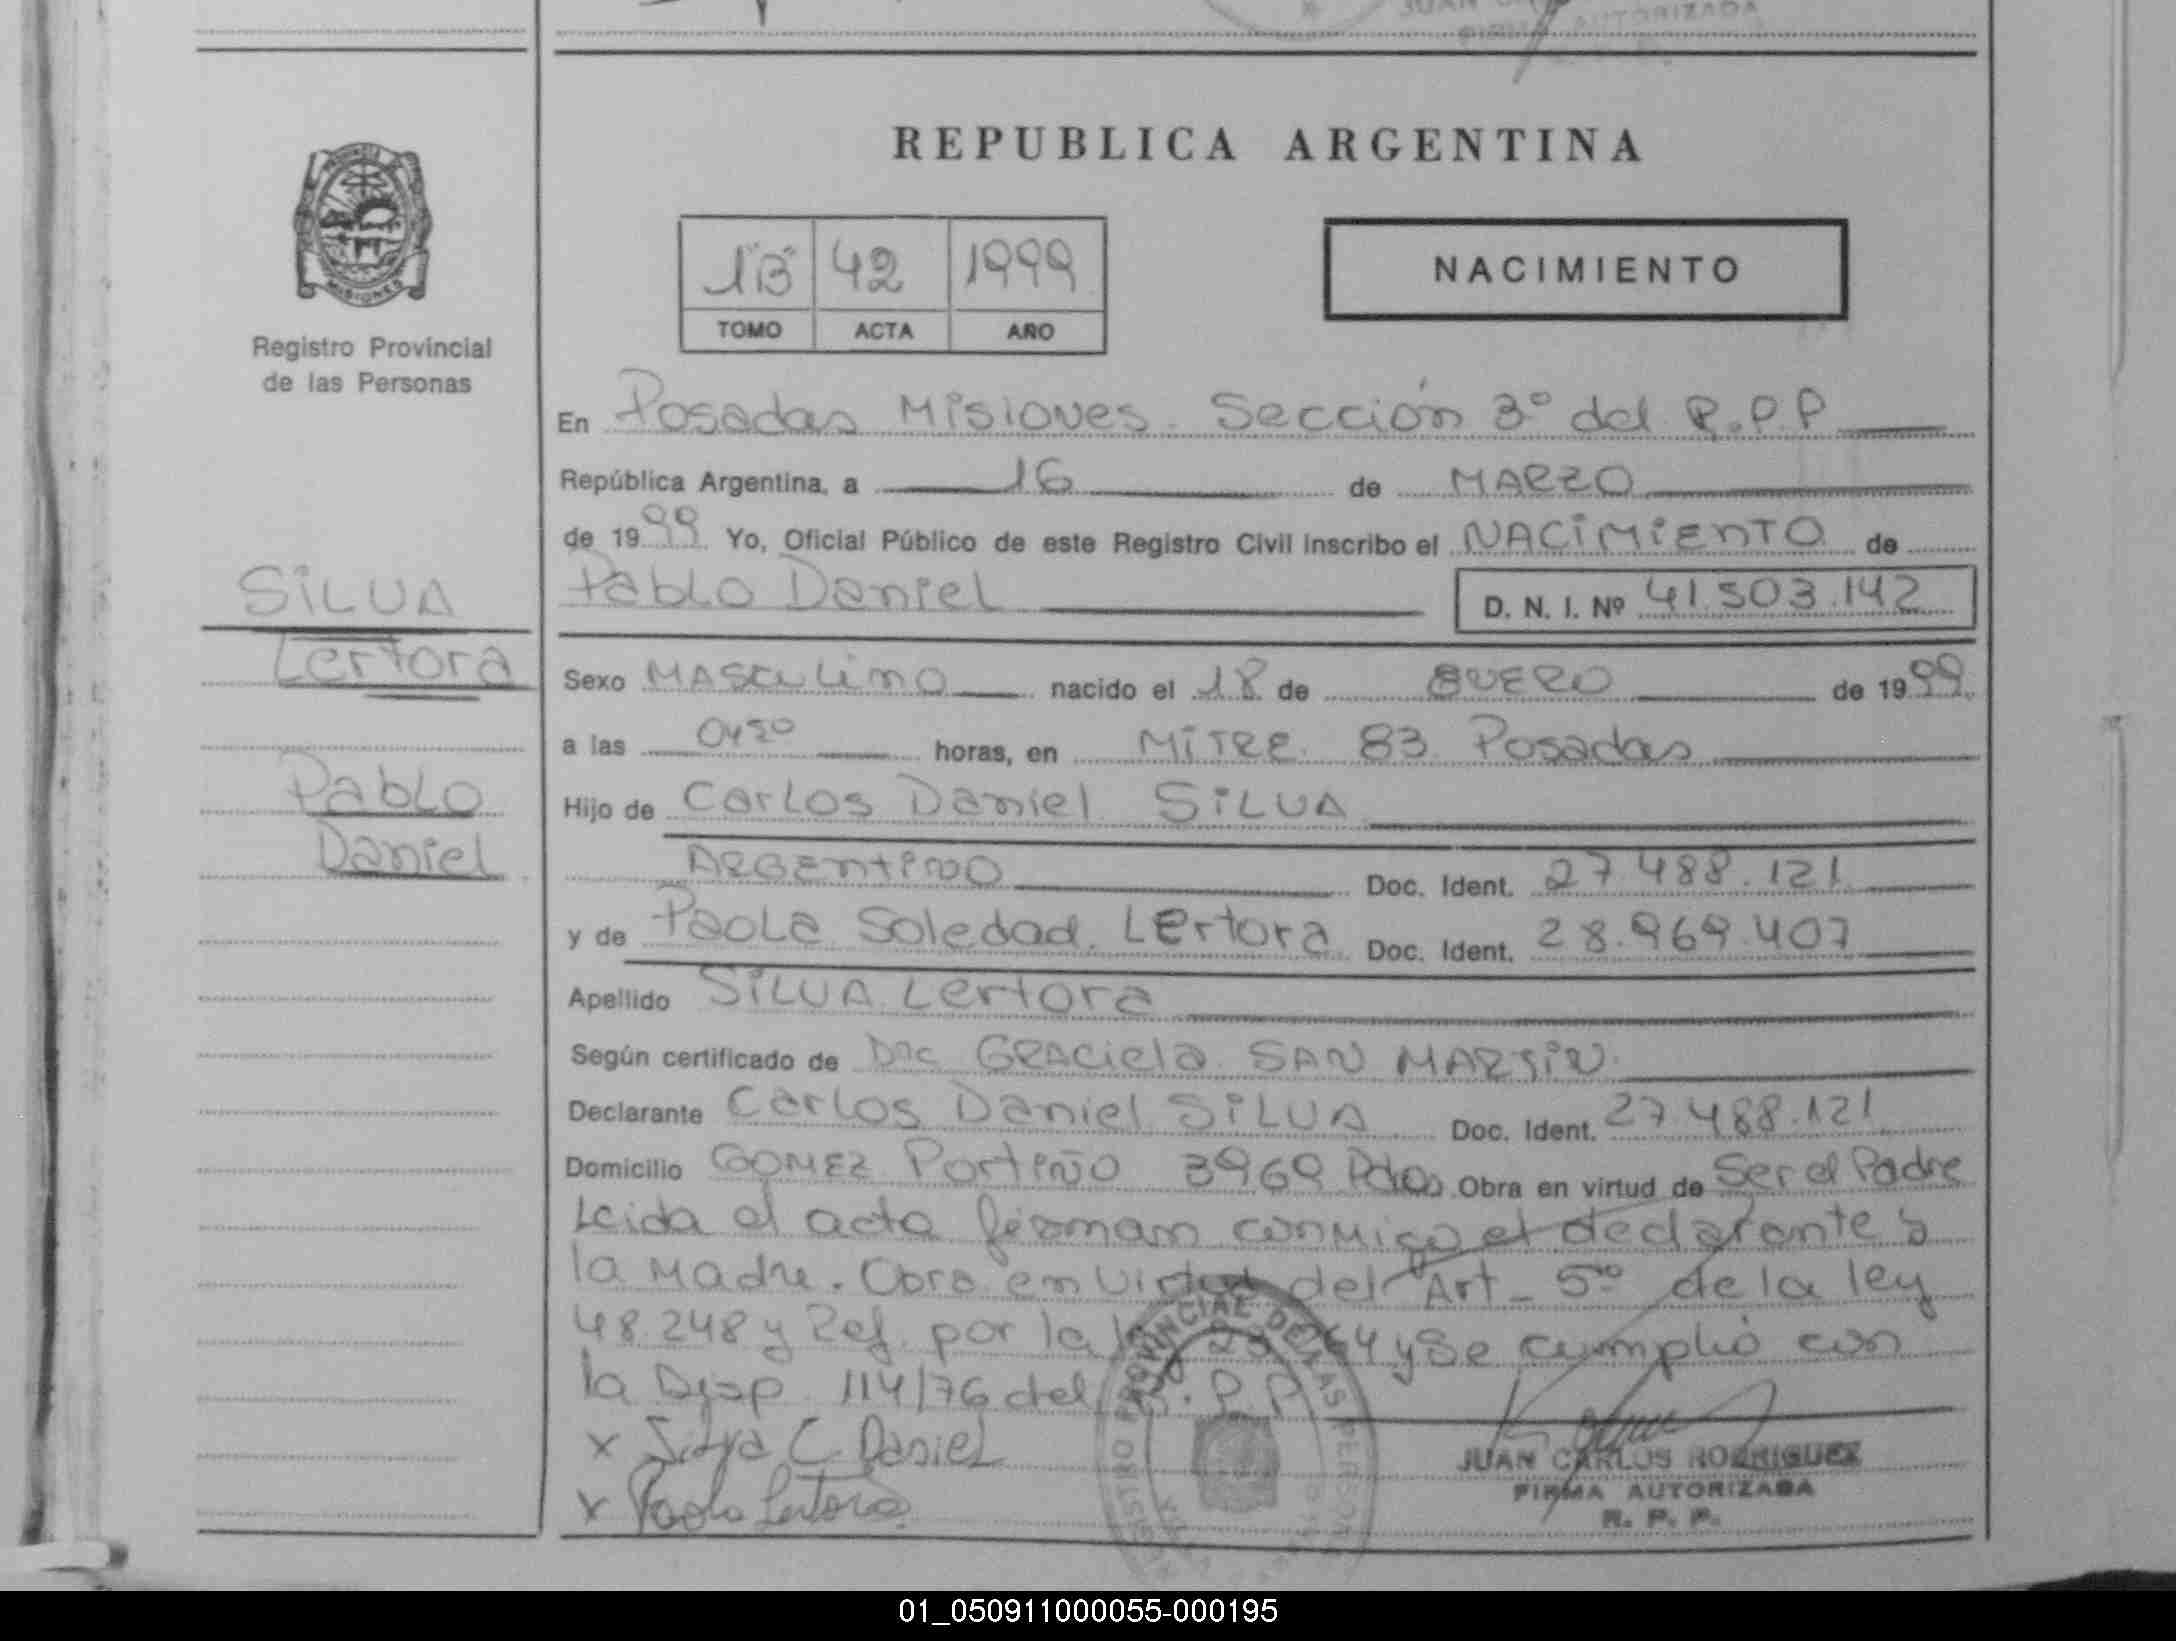 REPUBLICA ARGENTINA
1"B" 42 1999
TOMO ACTA AÑO
NACIMIENTO
MISIONES
Registro Provincial
de las Personas
SILVA
Lertora
Pablo
Daniel
En Posadas Misiones. Sección 3º del R.P.P
República Argentina, a 16 de MARZO
de 1999 Yo, Oficial Público de este Registro Civil inscribo el NACIMIENTO de
Pablo Daniel D. N. I. Nº 41.503.142
Sexo MASCULINO nacido el 18 de ENERO de 1999
a las 0450 horas, en MITRE 83 Posadas
Hijo de Carlos Daniel SILVA
ARGENTINO Doc. Ident. 27.488.121
y de Paola Soledad Lertora Doc. Ident. 28.969.407
Apellido SILVA Lertora
Según certificado de Dra GRACIELA SAN MARTIN
Declarante Carlos Daniel SILVA Doc. Ident. 27.488.121
Domicilio GOMEZ Portiño 3969 Pdas Obra en virtud de Ser el Padre
Leida el acta firman conmigo el declarante y
la Madre. Obra en virtud del Art- 5to de la ley
48.248 y Ref. por la 64 y se cumplió con
la Disp 114/76 del R.P.P
x Silva C Daniel
x Paola Lertora
JUAN CARLOS RODRIGUEZ
FIRMA AUTORIZADA
R. P. P.
01_050911000055-000195